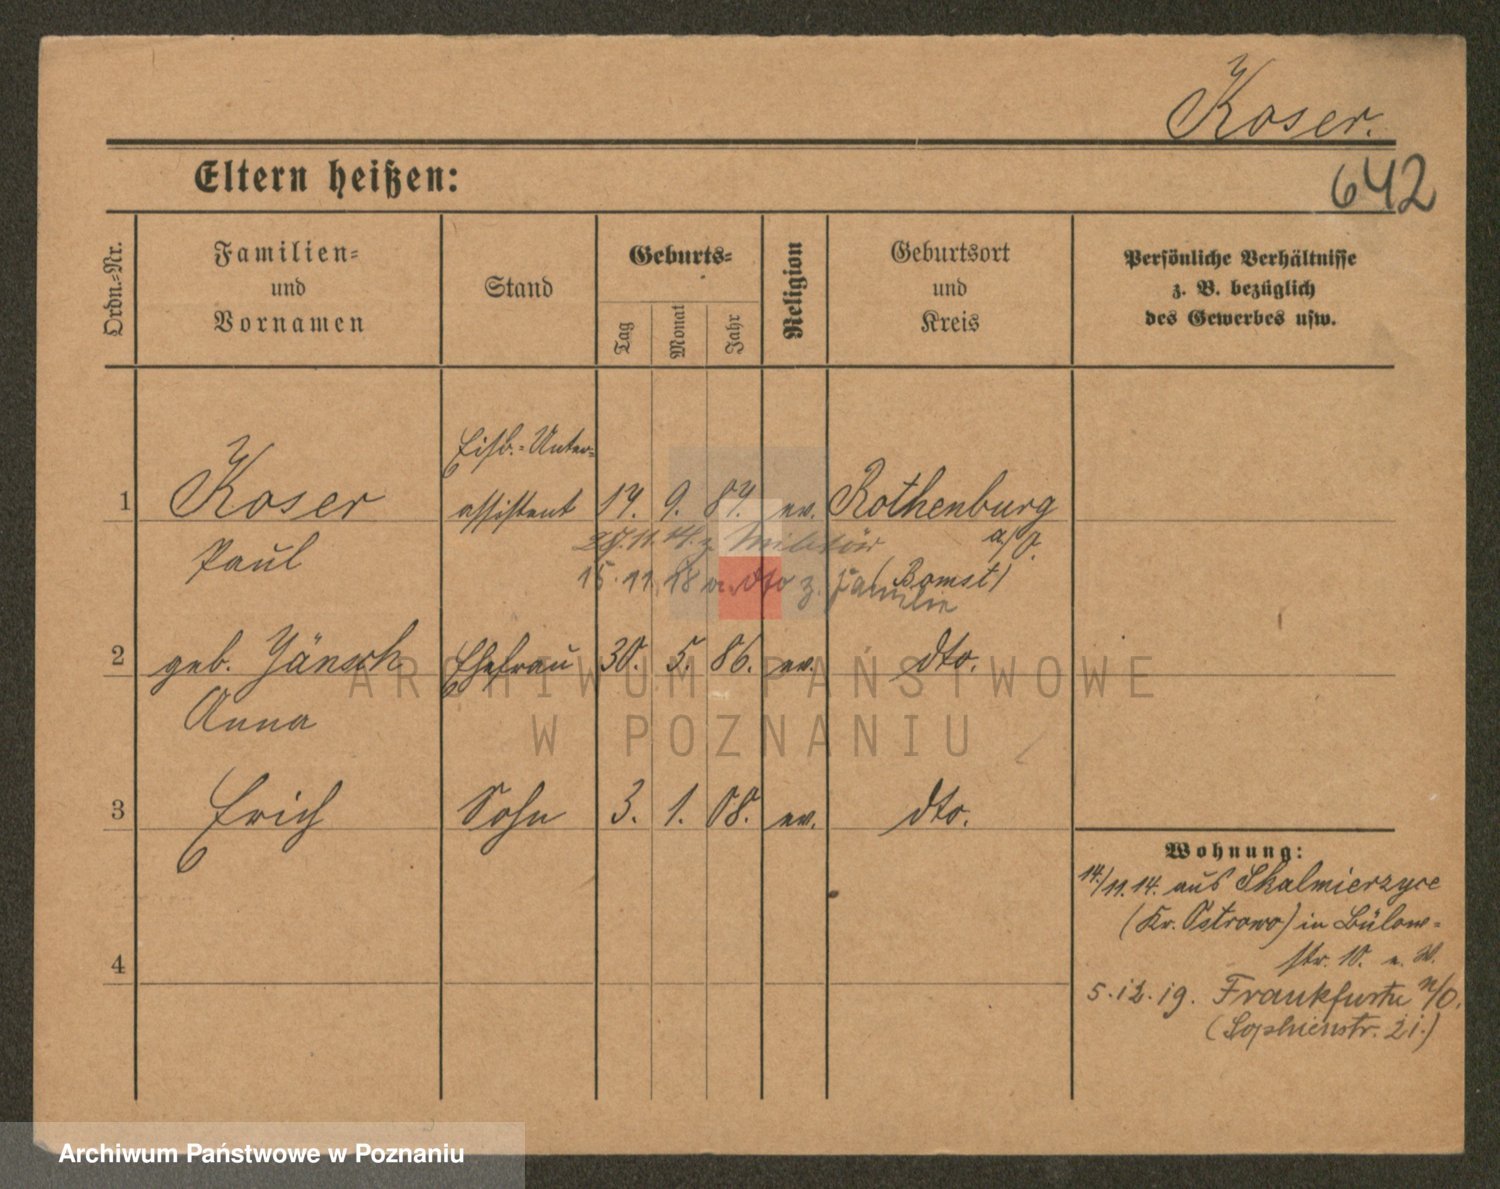 Koser.
642
Eltern heißen:
Ordn.-Nr.
Familien-
und
Vornamen
Stand
Geburts-
Tag
Monat
Jahr
Religion
Geburtsort
und
Kreis
Persönliche Verhältnisse
z. B. bezüglich
des Gewerbes usw.
Eisb.-Unter-
1 Koser assistent 9. ev. Rothenburg
Paul z. Militär a/O.
15.11.18 v. dto z. Familie (Bomst)
2 geb. Jänsch Ehefrau 30. 5. 86. ev. dto.
Anna
3 Erich Sohn 3. 1. 08. ev. dto.
4
Wohnung:
14./11.14. aus Skalmierzyce
(Kr. Ostrowo) in Bülow-
str. 10.
5.12.19. Frankfurt /O.
(Sophienstr. 21.)
ARCHIWUM PAŃSTWOWE
W POZNANIU
Archiwum Państwowe w Poznaniu